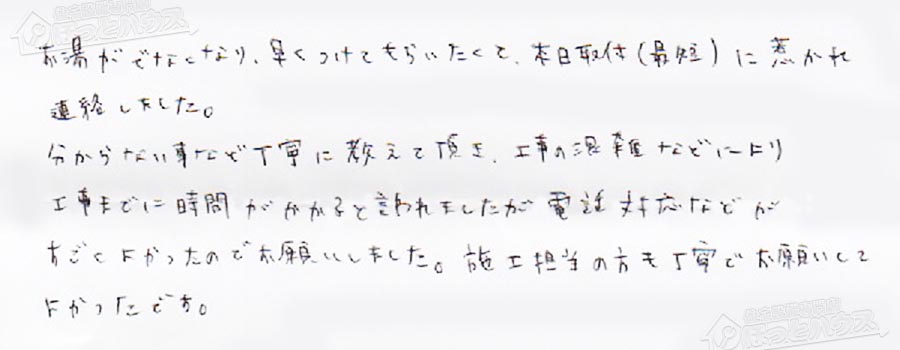 お湯がでなくなり、早くつけてもらいたくて、本日取付(最短)に惹かれ
連絡しました。
分からない事など丁寧に教えて頂き、工事の混雑などにより
工事までに時間がかかると言われましたが電話対応などが
すごくよかったのでお願いしました。施工担当の方も丁寧でお願いして
よかったです。
ほっとハウス
ほっとハウス